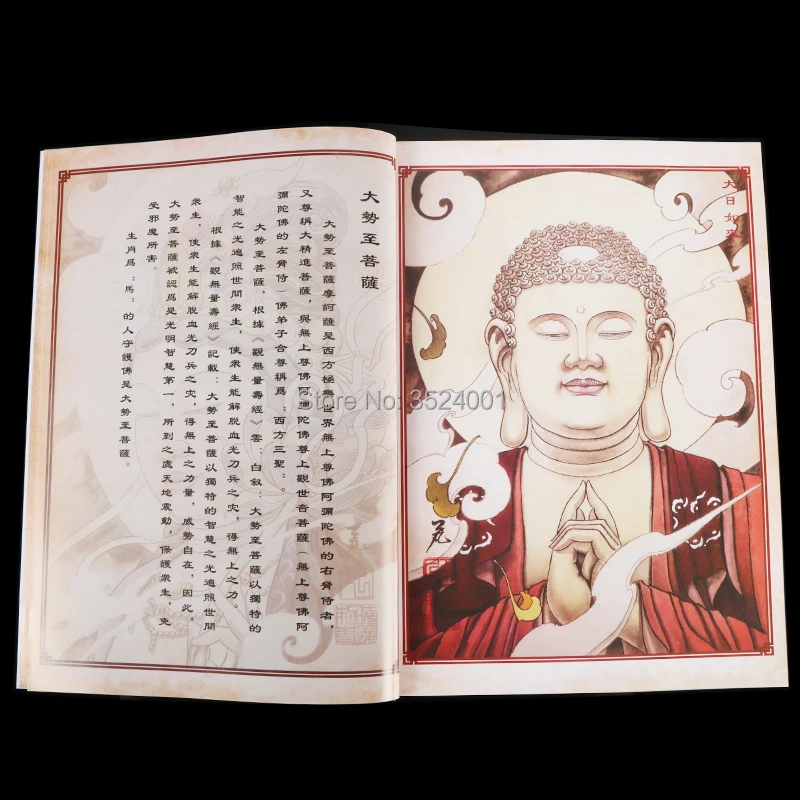 大勢至菩薩
大勢至菩薩摩訶薩是西方極樂世界無上尊佛阿彌陀佛的右脅侍者，
又尊稱大精進菩薩，與無上尊佛阿彌陀佛尊上觀世音菩薩（無上尊佛阿
彌陀佛的左脅侍）佛弟子合尊稱爲“西方三聖”。
大勢至菩薩，根據《觀無量壽經》雲：白叙：大勢至菩薩以獨特的
智能之光遍照世間衆生，使衆生能解脫血光刀兵之灾，得無上之力。
根據《觀無量壽經》記載：大勢至菩薩以獨特的智慧之光遍照世間
衆生，使衆生能解脫血光刀兵之灾，得無上之力量，威勢自在，因此，
大勢至菩薩被認爲是光明智慧第一，所到之處天地震動，保護衆生，免
受邪魔所害。
生肖爲“馬”的人守護佛是大勢至菩薩。
大日如來
Store No: 3524001